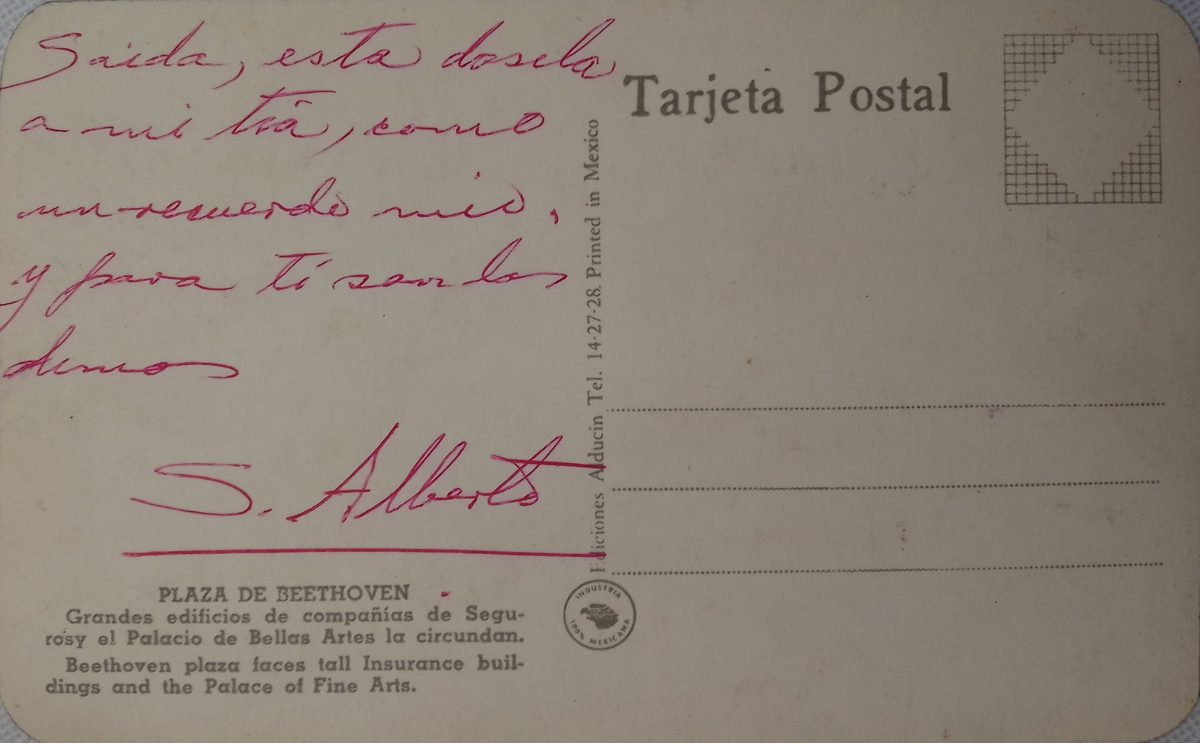 Saida, esta dasela
a mi tía, como
un recuerdo mio,
y para tí son las
demas
S. Alberto
PLAZA DE BEETHOVEN
Grandes edificios de compañías de Segu-
rosy el Palacio de Bellas Artes la circundan.
Beethoven plaza faces tall Insurance buil-
dings and the Palace of Fine Arts.
Ediciones Alducin Tel. 14-27-28. Printed in Mexico
INDUSTRIA
100% MEXICANA
Tarjeta Postal